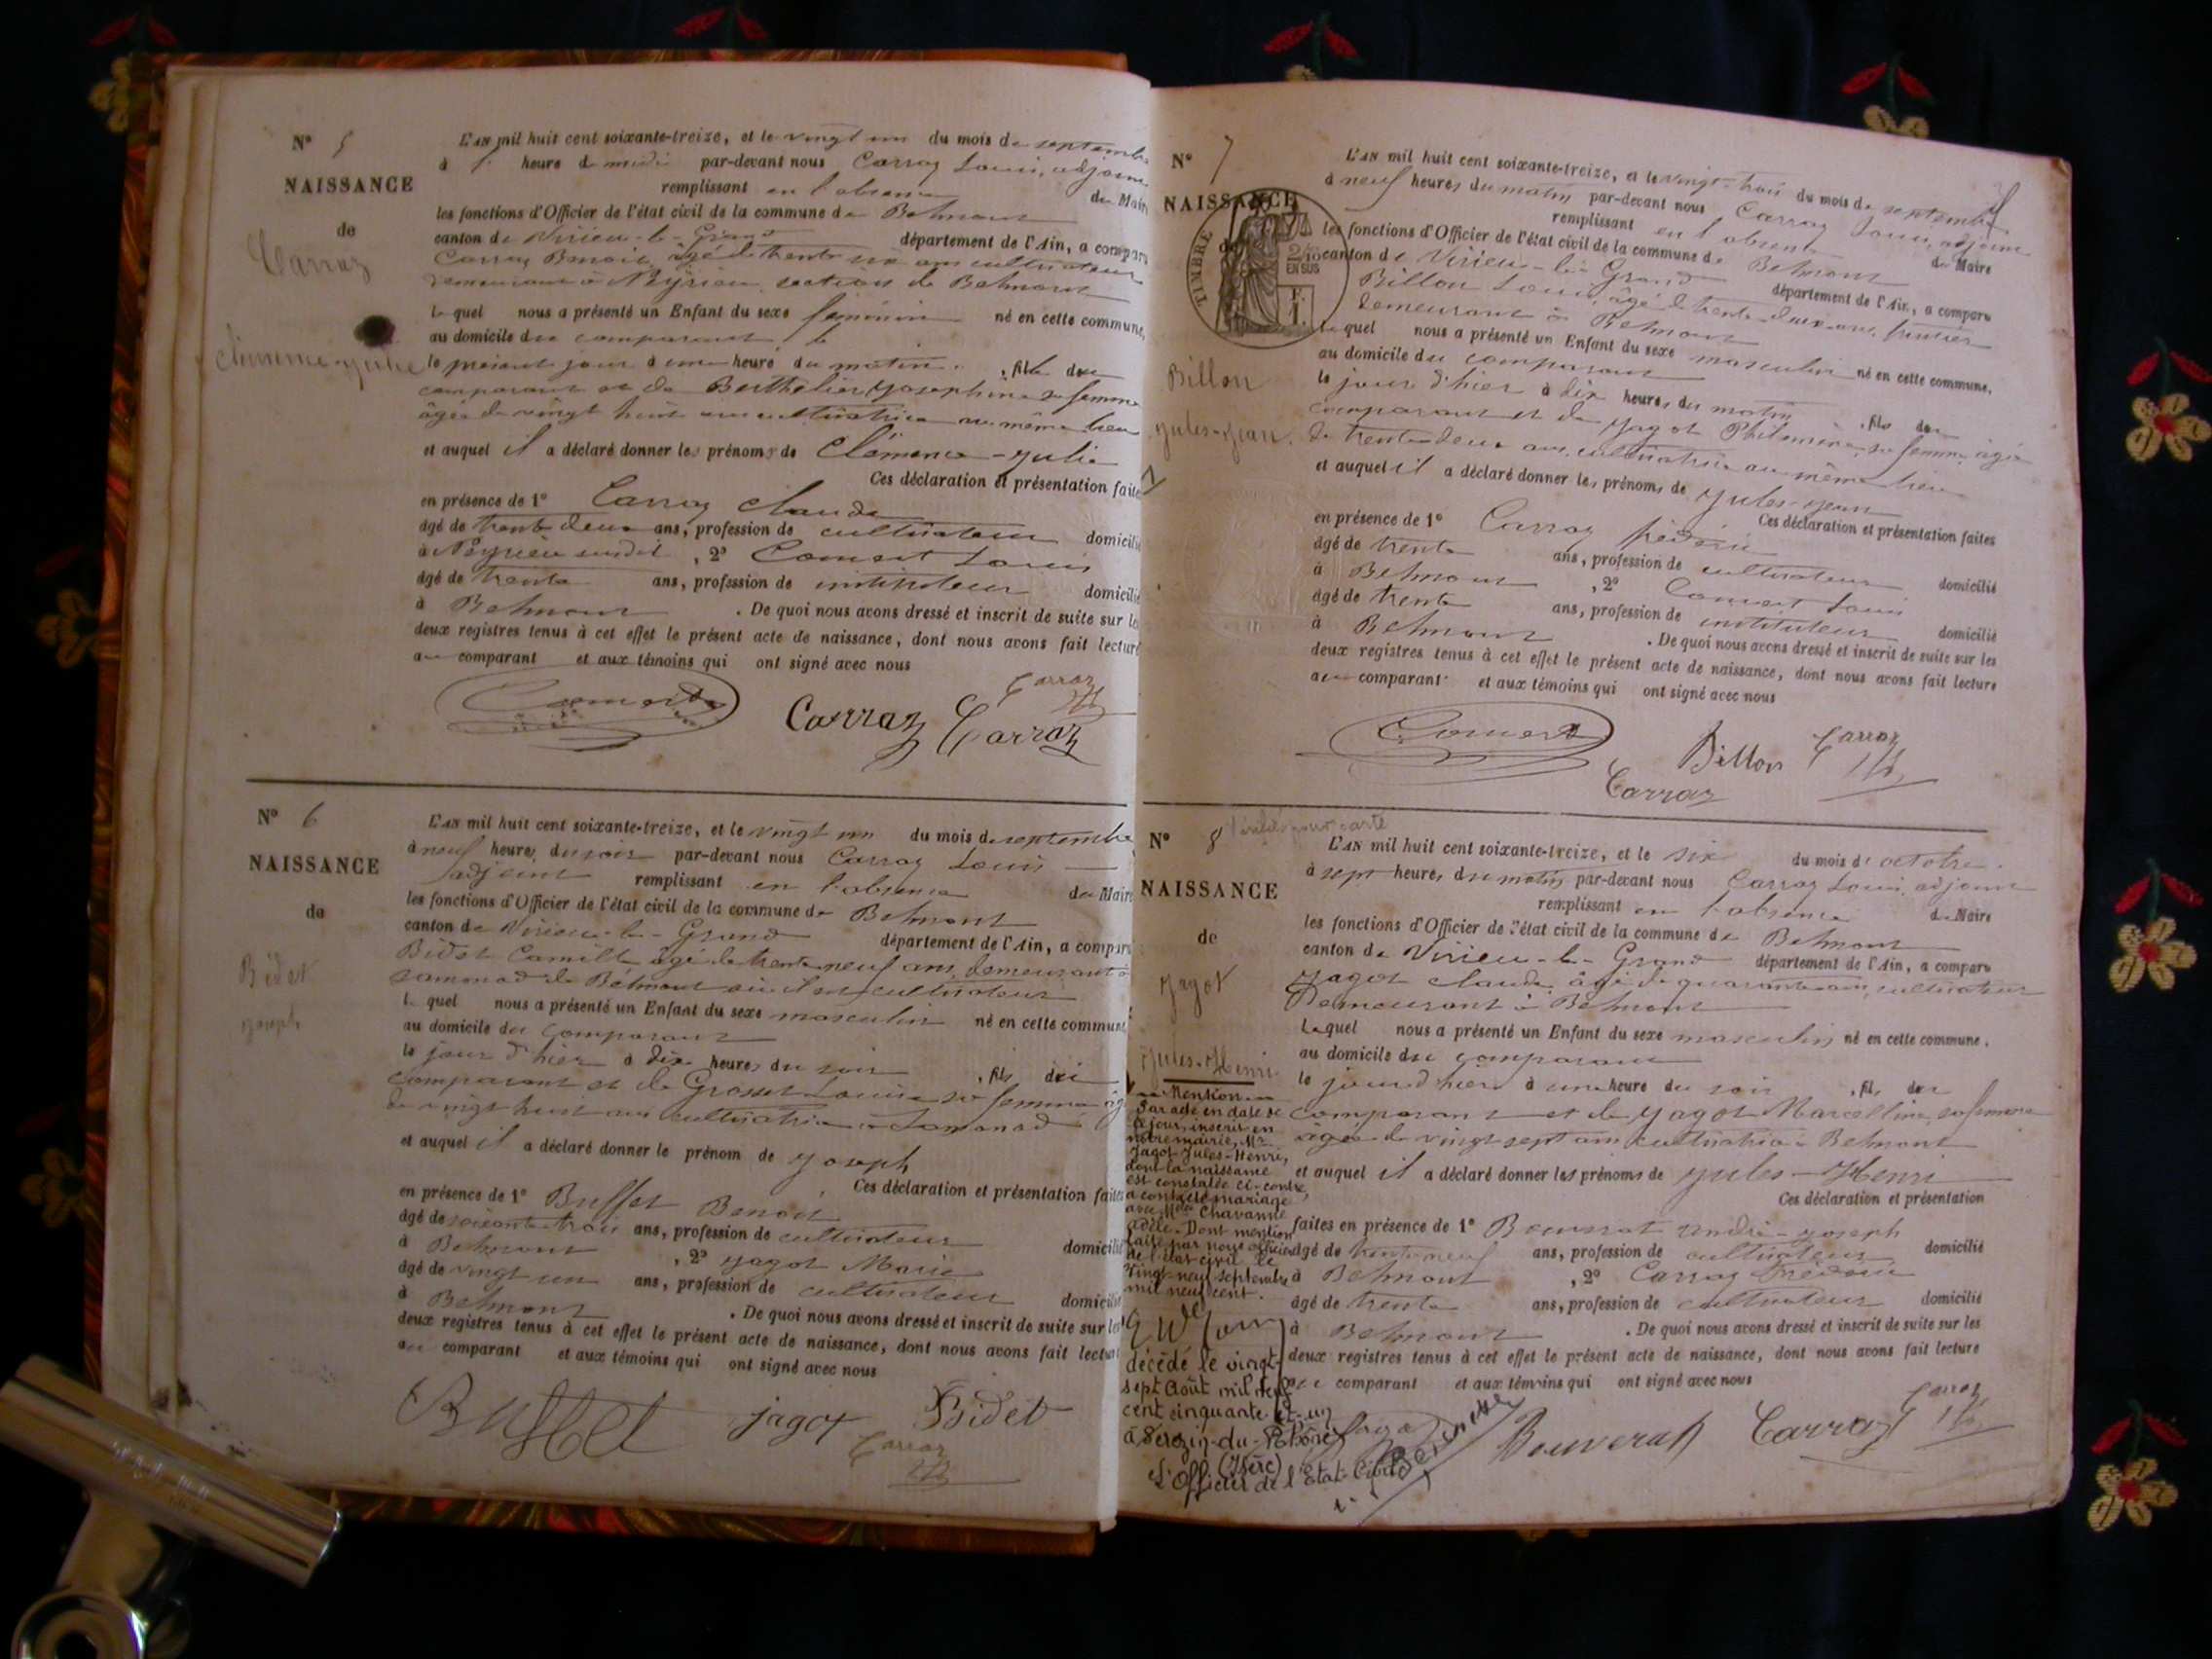 N° 5
NAISSANCE
de
Carraz
Clémence-Julie
L'AN mil huit cent soixante-treize, et le vingt un du mois de septembre
à 1 heure de midi par-devant nous Carraz Louis, adjoint
remplissant en l'absence du Maire
les fonctions d'Officier de l'état civil de la commune de Belmont
canton de Virieu-le-Grand département de l'Ain, a comparu
Carraz Benoit, âgé de trente six ans cultivateur
demeurant à Neyrieu section de Belmont
lequel nous a présenté un Enfant du sexe féminin né en cette commune,
au domicile du comparant
le présent jour à une heure du matin, fille du
comparant et de Berthelier Josephine sa femme
âgée de vingt huit ans cultivatrice au même lieu
et auquel il a déclaré donner les prénoms de Clémence-Julie
Ces déclaration et présentation faites
en présence de 1° Carraz Claude
âgé de trente deux ans, profession de cultivateur domicilié
à Neyrieu susdit, 2° Comert Louis
âgé de trente ans, profession de instituteur domicilié
à Belmont. De quoi nous avons dressé et inscrit de suite sur les
deux registres tenus à cet effet le présent acte de naissance, dont nous avons fait lecture
au comparant et aux témoins qui ont signé avec nous
Carraz
Comert Carraz Carraz
N° 6
NAISSANCE
de
Bidet
Joseph
L'AN mil huit cent soixante-treize, et le vingt un du mois de septembre
à neuf heures du soir par-devant nous Carraz Louis
adjoint remplissant en l'absence du Maire
les fonctions d'Officier de l'état civil de la commune de Belmont
canton de Virieu-le-Grand département de l'Ain, a comparu
Bidet Camille âgé de trente neuf ans, demeurant à
Sammod de Belmont où il est cultivateur
lequel nous a présenté un Enfant du sexe masculin né en cette commune
au domicile du comparant
le jour d'hier à dix heures du soir, fils du
comparant et de Grosset Louise sa femme âgée
de vingt huit ans cultivatrice à
et auquel il a déclaré donner le prénom de Joseph
Ces déclaration et présentation faites
en présence de 1° Buffet Benoit
âgé de soixante trois ans, profession de cultivateur
à Belmont, 2° Jagot Marie domicilié
âgé de vingt un ans, profession de cultivateur
à Belmont domicilié
. De quoi nous avons dressé et inscrit de suite sur les
deux registres tenus à cet effet le présent acte de naissance, dont nous avons fait lecture
au comparant et aux témoins qui ont signé avec nous
Buffet jagot Bidet
Carraz
N° 7
NAISSANCE
de
TIMBRE
2/10
EN SUS
Billon
Jules-Jean.
L'AN mil huit cent soixante-treize, et le vingt-trois du mois de septembre
à neuf heures du matin par-devant nous Carraz Louis, adjoint
remplissant en l'absence du Maire
les fonctions d'Officier de l'état civil de la commune de Belmont
canton de Virieu-le-Grand département de l'Ain, a comparu
Billon Louis, âgé de trente-deux ans, fruitier
demeurant à Belmont
lequel nous a présenté un Enfant du sexe masculin né en cette commune,
au domicile du comparant
le jour d'hier à dix heures du matin, fils du
comparant et de Jagot Philomène sa femme âgée
de trente-deux ans, cultivatrice au même lieu
et auquel il a déclaré donner les prénoms de Jules-Jean
Ces déclaration et présentation faites
en présence de 1° Carraz Frédéric
âgé de trente ans, profession de cultivateur domicilié
à Belmont, 2° Comert Louis
âgé de trente ans, profession de instituteur domicilié
à Belmont. De quoi nous avons dressé et inscrit de suite sur les
deux registres tenus à cet effet le présent acte de naissance, dont nous avons fait lecture
au comparant et aux témoins qui ont signé avec nous
Comert Billon Carraz
Carraz
N° 8
NAISSANCE
de
Jagot
Jules-Henri
Mention
Par acte en date de
ce jour, inscrit en
notre mairie, Mr
Jagot Jules-Henri,
dont la naissance
est constatée ci-contre,
a contracté mariage
avec Mlle Chavanne
Adèle. Dont mention
faite par nous officier
de l'état civil le
vingt-neuf septembre
mil neuf cent.
décédé le vingt-
sept Août mil neuf
cent cinquante et-un
à Serezin-du-Rhône
(Isère)
L'Officier de l'Etat-Civil
L'AN mil huit cent soixante-treize, et le six du mois d'octobre
à sept heures du matin par-devant nous Carraz Louis, adjoint
remplissant en l'absence du Maire
les fonctions d'Officier de l'état civil de la commune de Belmont
canton de Virieu-le-Grand département de l'Ain, a comparu
Jagot Claude, âgé de quarante ans, cultivateur
demeurant à Belmont
Lequel nous a présenté un Enfant du sexe masculin né en cette commune.
au domicile du comparant
le jour d'hier à une heure du soir, fils du
comparant et de Jagot Marcelline, sa femme
âgée de vingt sept ans cultivatrice à Belmont
et auquel il a déclaré donner les prénoms de Jules-Henri
Ces déclaration et présentation
faites en présence de 1° Bouverat André-Joseph
âgé de trente neuf ans, profession de cultivateur domicilié
à Belmont, 2° Carraz Frédéric
âgé de trente ans, profession de cultivateur domicilié
à Belmont. De quoi nous avons dressé et inscrit de suite sur les
deux registres tenus à cet effet le présent acte de naissance, dont nous avons fait lecture
au comparant et aux témoins qui ont signé avec nous
Jagot Bouverat Carraz Carraz